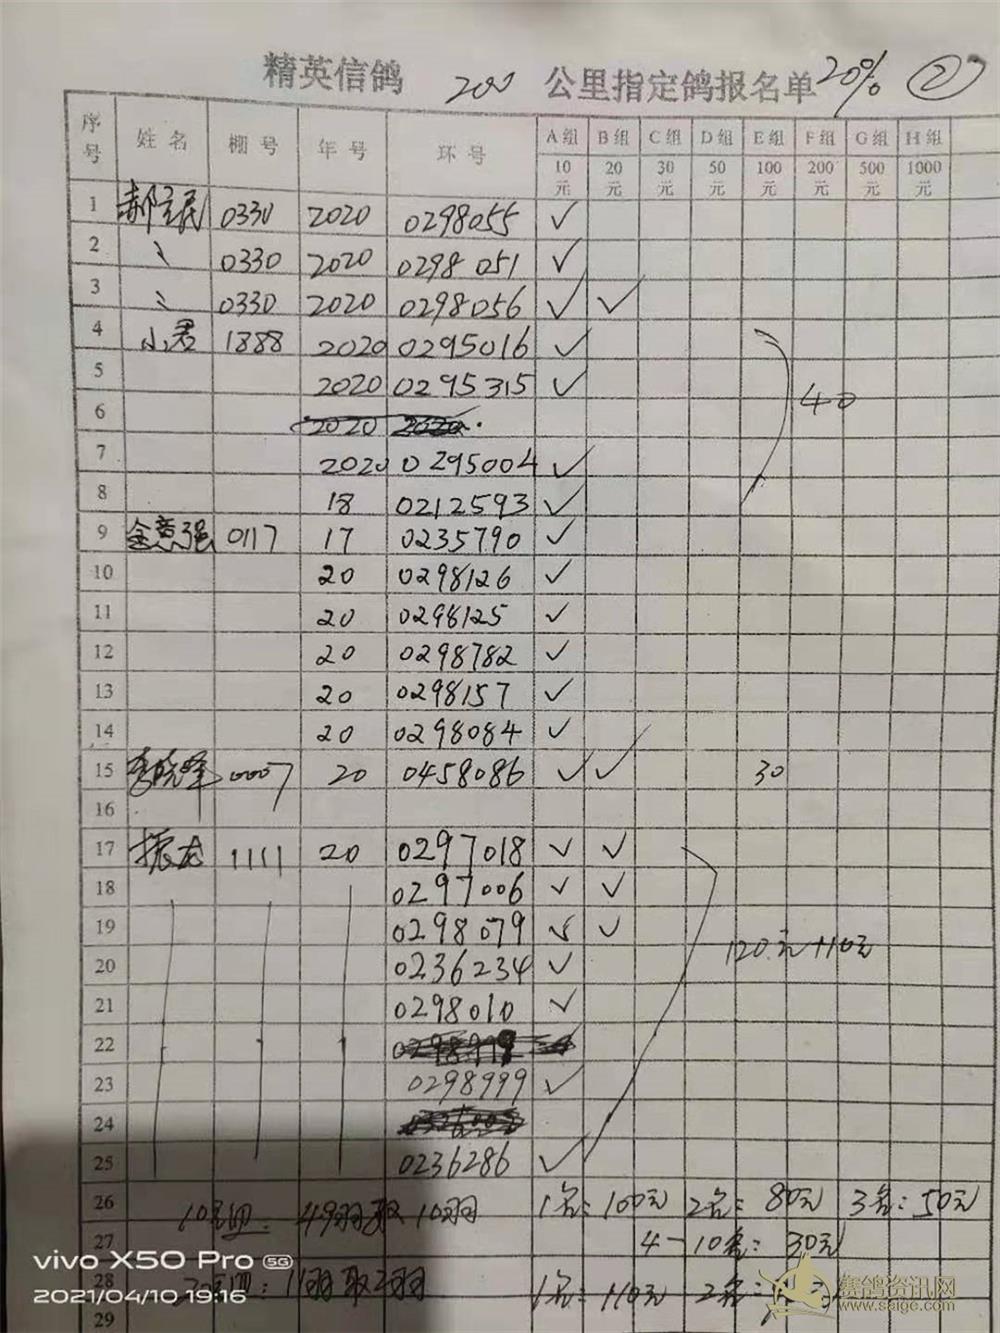 精英信鸽 200 公里指定鸽报名单 20% ②
序号 姓名 棚号 年号 环号 A组 B组 C组 D组 E组 F组 G组 H组
10元 20元 30元 50元 100元 200元 500元 1000元
1 郝立民 0330 2020 0298055 ✓
2 〃 0330 2020 0298051 ✓
3 〃 0330 2020 0298056 ✓ ✓
4 小君 1888 2020 0295016 ✓
5 2020 0295315 ✓
40
6 2020
7 2020 0295004 ✓
8 18 0212593 ✓
9 金意强 0117 17 0235790 ✓
10 20 0298126 ✓
11 20 0298125 ✓
12 20 0298782 ✓
13 20 0298157 ✓
14 20 0298084 ✓
15 李晓峰 0007 20 0458086 ✓ ✓ 30
16
17 振龙 1111 20 0297018 ✓ ✓
18 0297006 ✓ ✓
19 0298079 ✓ ✓
120元+10元
20 0236234 ✓
21 0298010 ✓
22
23 0298999 ✓
24
25 0236286 ✓
26 10元组: 49羽取10羽 1名: 100元 2名: 80元 3名: 50元
27 4-10名: 30元
28 20元组: 11羽取2羽 1名: 110元 2名:
29
vivo X50 Pro 5G
2021/04/10 19:16
赛鸽资讯网
www.saige.com